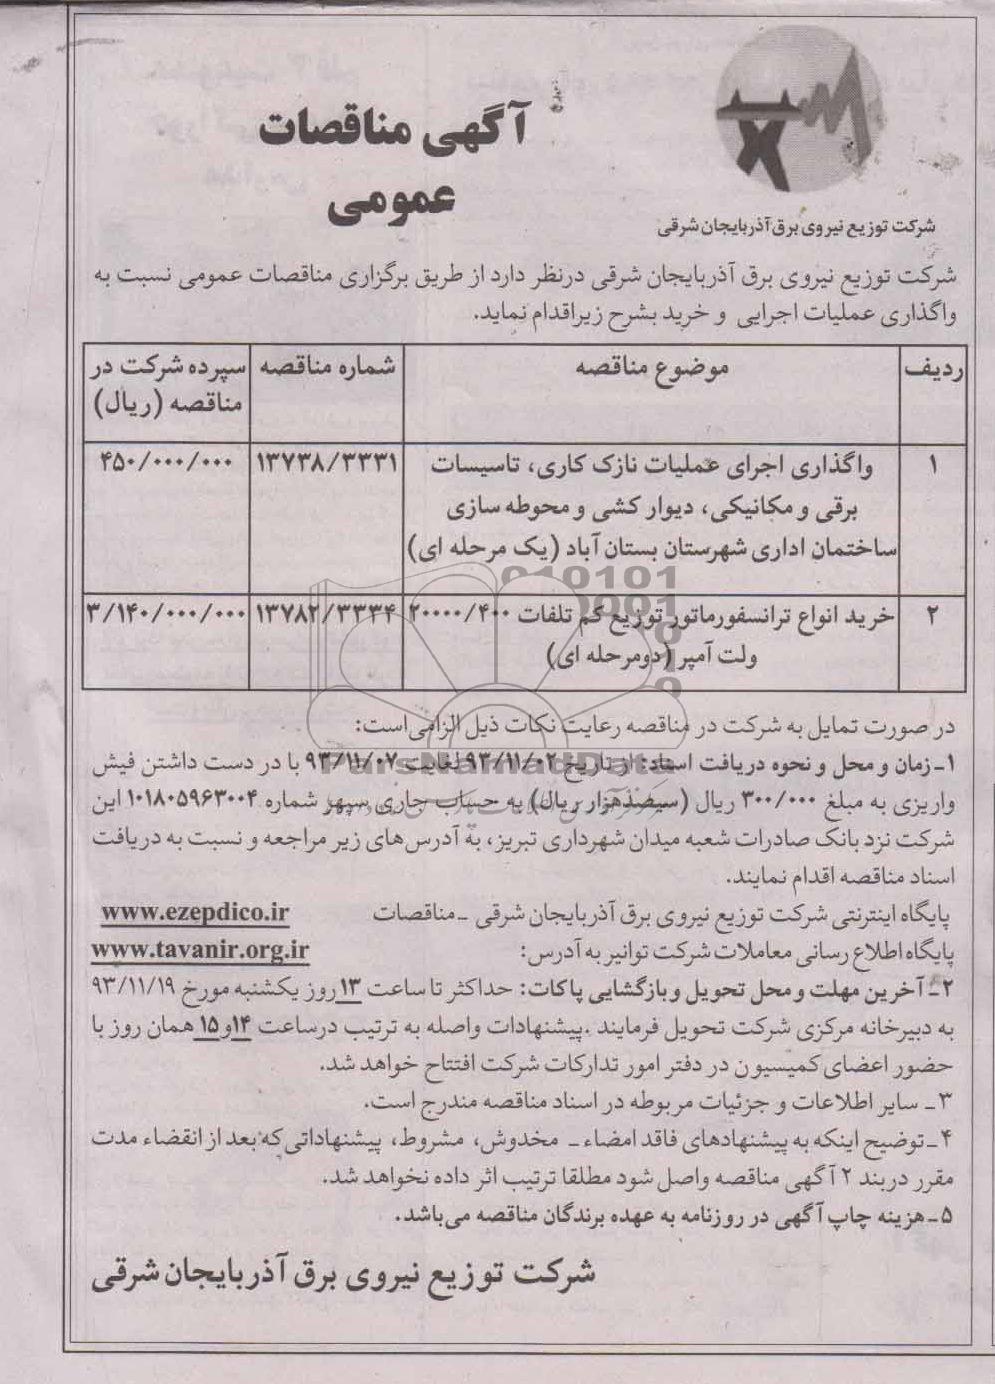 آگهی مناقصات
عمومی
شرکت توزیع نیروی برق آذربایجان شرقی
شرکت توزیع نیروی برق آذربایجان شرقی درنظر دارد از طریق برگزاری مناقصات عمومی نسبت به
واگذاری عملیات اجرایی و خرید بشرح زیراقدام نماید.
ردیف موضوع مناقصه شماره مناقصه سپرده شرکت در
مناقصه (ریال)
۱ واگذاری اجرای عملیات نازک کاری، تاسیسات ۱۳۷۳۸/۳۳۳۱ ۴۵۰/۰۰۰/۰۰۰
برقی و مکانیکی، دیوار کشی و محوطه سازی
ساختمان اداری شهرستان بستان آباد (یک مرحله ای)
۲ خرید انواع ترانسفورماتور توزیع کم تلفات ۲۰۰۰۰/۴۰۰ ۱۳۷۸۲/۳۳۳۴ ۳/۱۴۰/۰۰۰/۰۰۰
ولت آمپر (دومرحله ای)
در صورت تمایل به شرکت در مناقصه رعایت نکات ذیل الزامی‌است:
۱-زمان و محل و نحوه دریافت اسناد: از تاریخ ۹۳/۱۱/۰۲ لغایت ۹۳/۱۱/۰۷ با در دست داشتن فیش
واریزی به مبلغ ۳۰۰/۰۰۰ ریال (سیصدهزار ریال) به حساب جاری سپهر شماره ۰۱۰۱۸۰۵۹۶۳۰۰۴ این
شرکت نزد بانک صادرات شعبه میدان شهرداری تبریز، به آدرس‌های زیر مراجعه و نسبت به دریافت
اسناد مناقصه اقدام نمایند.
پایگاه اینترنتی شرکت توزیع نیروی برق آذربایجان شرقی -مناقصات www.ezepdico.ir
پایگاه اطلاع رسانی معاملات شرکت توانیر به آدرس: www.tavanir.org.ir
۲- آخرین مهلت و محل تحویل و بازگشایی پاکات: حداکثر تا ساعت ۱۳ روز یکشنبه مورخ ۹۳/۱۱/۱۹
به دبیرخانه مرکزی شرکت تحویل فرمایند .پیشنهادات واصله به ترتیب درساعت ۱۴و۱۵ همان روز با
حضور اعضای کمیسیون در دفتر امور تدارکات شرکت افتتاح خواهد شد.
۳- سایر اطلاعات و جزئیات مربوطه در اسناد مناقصه مندرج است.
۴-توضیح اینکه به پیشنهادهای فاقد امضاء - مخدوش، مشروط، پیشنهاداتی که بعد از انقضاء مدت
مقرر دربند ۲ آگهی مناقصه واصل شود مطلقا ترتیب اثر داده نخواهد شد.
۵-هزینه چاپ آگهی در روزنامه به عهده برندگان مناقصه می‌باشد.
شرکت توزیع نیروی برق آذربایجان شرقی
ParsNamadData